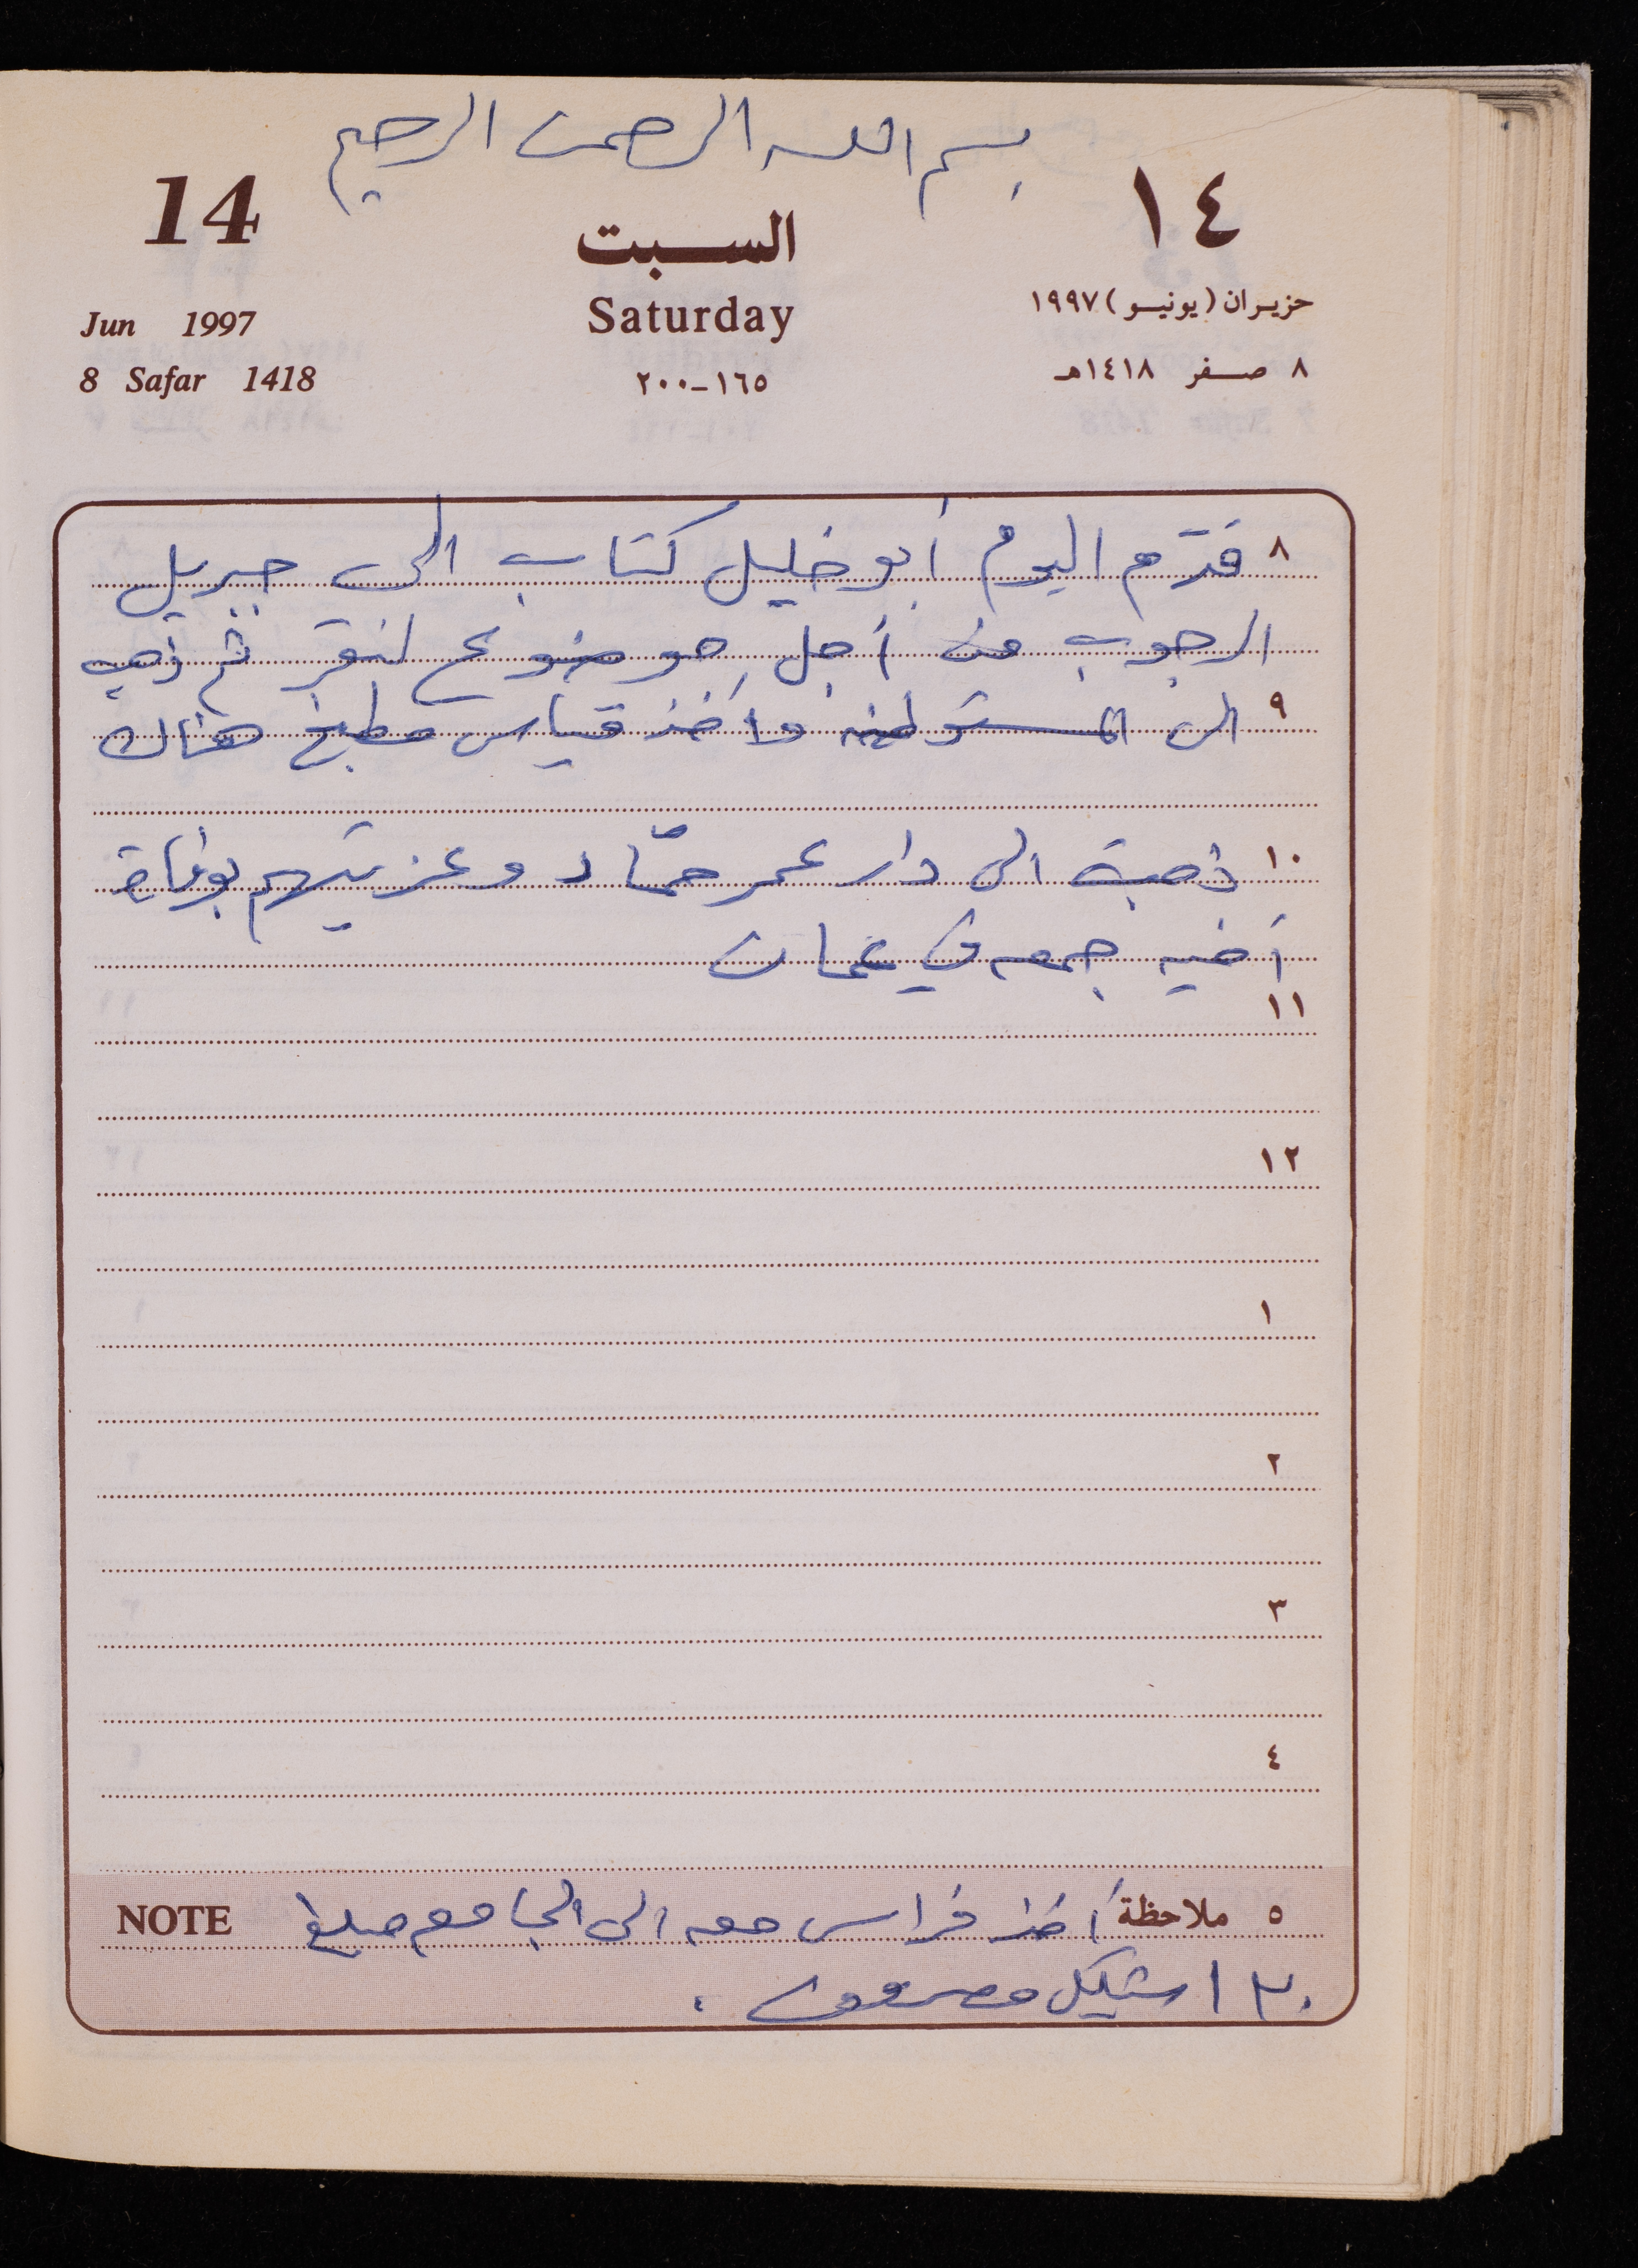 بسم الله الرحمن الرحيم
14
السبت
١٤
Jun 1997
Saturday
حزيران (يونيو) ١٩٩٧
8 Safar 1418
١٦٥-٢٠٠
٨ صفر ١٤١٨هـ
٨ قدّم اليوم أبو خليل كتاب الى جبريل
الرجوب من أجل موضوع ثم ذهب
٩ الى المستوطنه وأخذ قياس مطبخ هناك
١٠ ذهبة الى دار عمر حمّاد وعزيتهم بوفاة
أخيه جمعه في عمان
١١
١٢
١
٢
٣
٤
٥ ملاحظة أخذ فراس معه الى الجامعه مبلغ NOTE
٣٠ اشيكل مصروف .